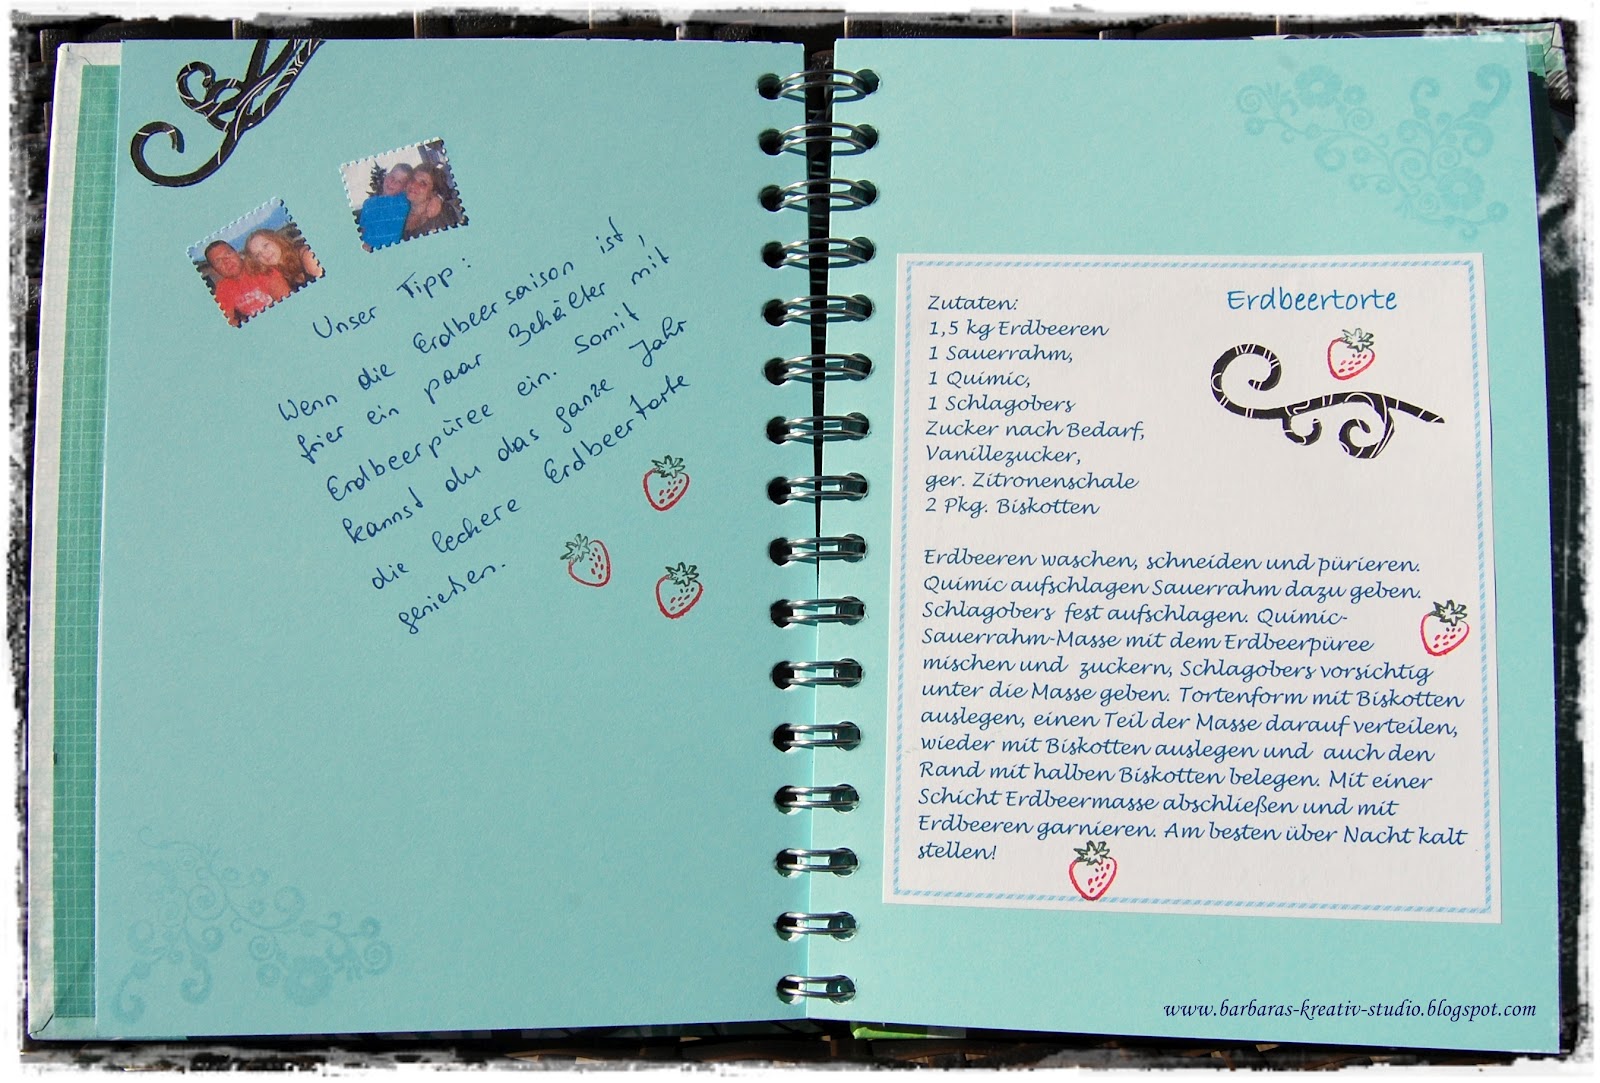 Unser Tipp:
Wenn die Erdbeersaison ist,
frier ein paar Behälter mit
Erdbeerpüree ein. Somit
kannst du das ganze Jahr
die leckere Erdbeertorte
genießen.
Erdbeertorte
Zutaten:
1,5 kg Erdbeeren
1 Sauerrahm,
1 Quimic,
1 Schlagobers
Zucker nach Bedarf,
Vanillezucker,
ger. Zitronenschale
2 Pkg. Biskotten
Erdbeeren waschen, schneiden und pürieren.
Quimic aufschlagen Sauerrahm dazu geben.
Schlagobers fest aufschlagen. Quimic-
Sauerrahm-Masse mit dem Erdbeerpüree
mischen und zuckern, Schlagobers vorsichtig
unter die Masse geben. Tortenform mit Biskotten
auslegen, einen Teil der Masse darauf verteilen,
wieder mit Biskotten auslegen und auch den
Rand mit halben Biskotten belegen. Mit einer
Schicht Erdbeermasse abschließen und mit
Erdbeeren garnieren. Am besten über Nacht kalt
stellen!
www.barbaras-kreativ-studio.blogspot.com